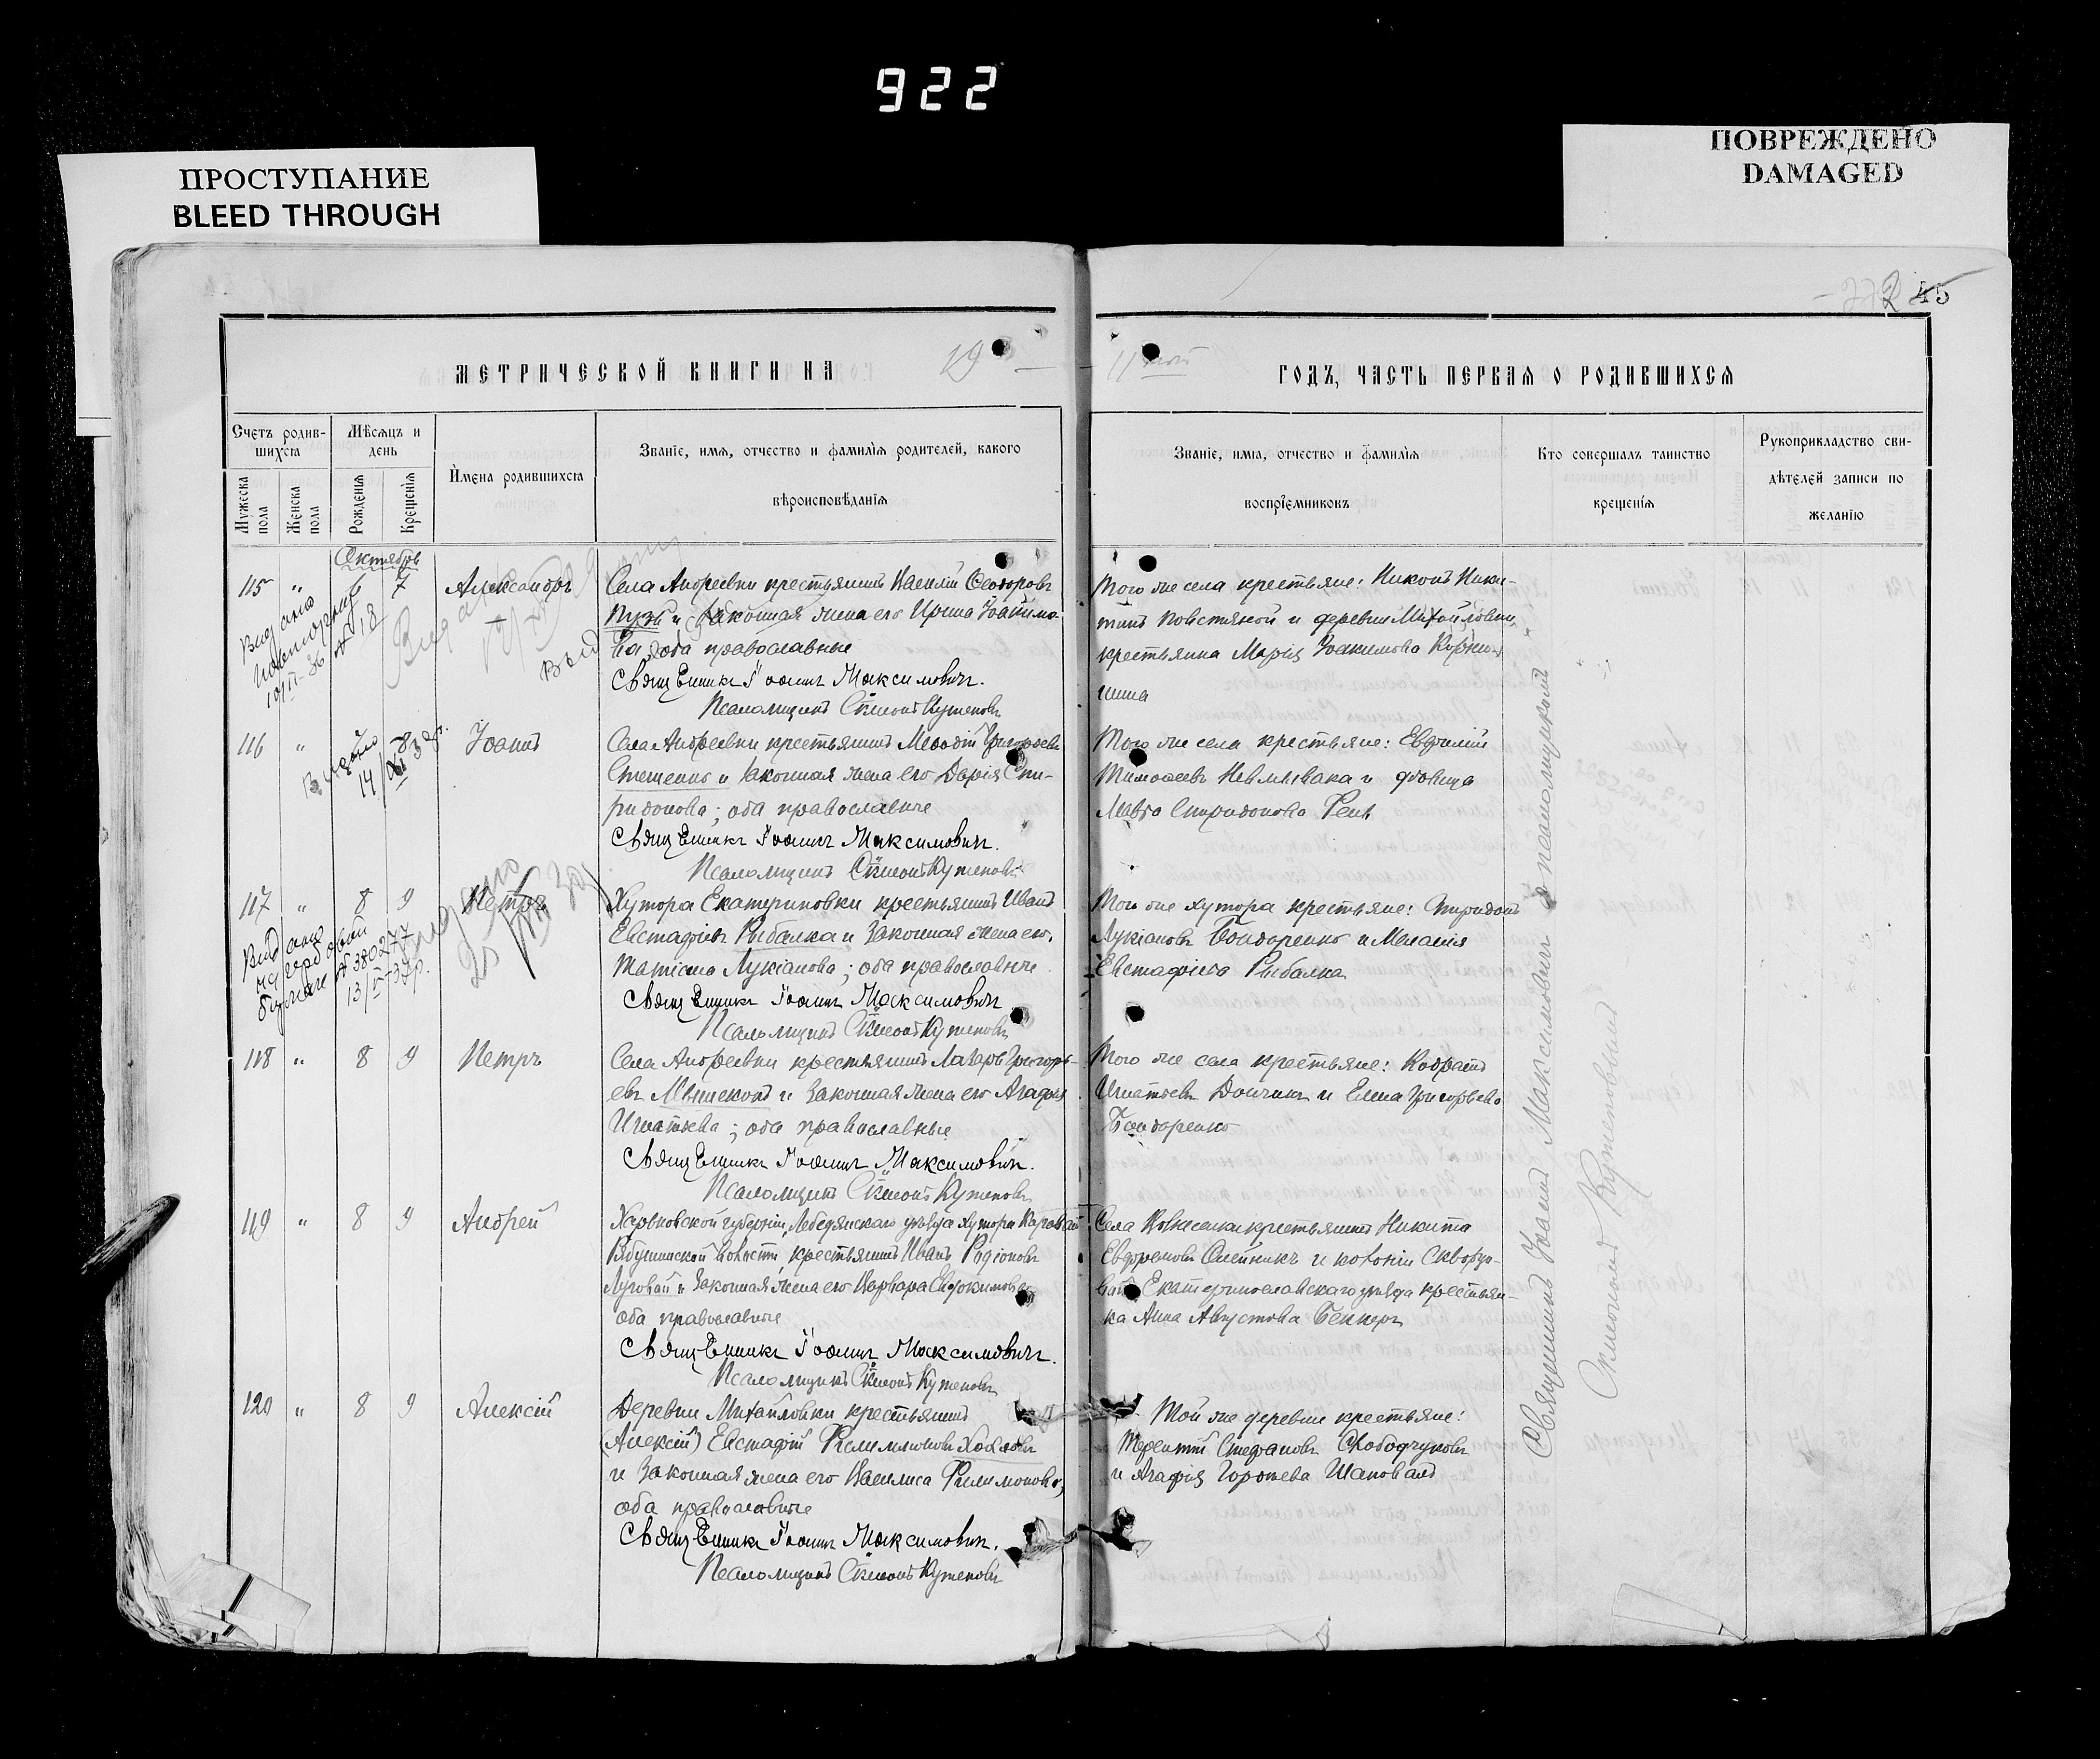 922
ПРОСТУПАНИЕ
BLEED THROUGH
ПОВРЕЖДЕНО
DAMAGED
45
МЕТРИЧЕСКОЙ КНИГИ НА 19
11 ГОДЪ, ЧАСТЬ ПЕРВАЯ О РОДИВШИХСЯ
Счетъ родив-
шихся
Мѣсяцъ и
день
Мужеска
пола
Женска
пола
Рожденія
Крещенія
Имена родившихся
Званіе, имя, отчество и фамилія родителей, какого
вѣроисповѣданія
Званіе, имя, отчество и фамилія
воспріемниковъ
Кто совершалъ таинство
крещенія
Рукоприкладство сви-
дѣтелей записи по
желанію
Октябрь
115 " 6 7 Александръ
Села Андреевки крестьянинъ Василій Ѳеодоровъ
Пузь и законная жена его Ирина Іоакимо-
ва, оба православные
Священникъ Іоаннъ Максимовичъ.
Псаломщикъ Сѷмеонъ Кутеповъ
Того же села крестьяне: Никонъ Ники-
тинъ и деревни Михайловки
крестьянка Марія Іоакимова
Выдано
повторное
№ 18
116 " 7 8 Іоаннъ
Села Андреевки крестьянинъ Меѳодій Григорьевъ
Стешенко и законная жена его Дарія Спи-
ридонова; оба православные
Священникъ Іоаннъ Максимовичъ.
Псаломщикъ Сѷмеонъ Кутеповъ
Того же села крестьяне: Евфимій
Тимоѳеевъ и вдовица
Мавра Спиридонова Репа
117 " 8 9 Петръ
Хутора Екатериновки крестьянинъ Иванъ
Евстафіевъ Рыбалка и законная жена его,
Татіана Лукіанова; оба православные
Священникъ Іоаннъ Максимовичъ
Псаломщикъ Сѷмеонъ Кутеповъ
Того же хутора крестьяне: Спиридонъ
Лукіановъ Бондаренко и Меланія
Евстафіева Рыбалка
Выдано
на гербовой
бумаге № 380277
118 " 8 9 Петръ
Села Андреевки крестьянинъ Лазарь Григорь-
евъ и законная жена его Агафія
Игнатьева; оба православные
Священникъ Іоаннъ Максимовичъ.
Псаломщикъ Сѷмеонъ Кутеповъ
Того же села крестьяне: Кодратъ
Игнатьевъ Дончикъ и Елена Григорьева
Бондаренко
119 " 8 9 Андрей
Харьковской губерніи, Лебедянскаго уѣзда хутора
волости, крестьянинъ Иванъ Родіоновъ
Луговай и законная жена его Варвара Евдокимова
оба православные
Священникъ Іоаннъ Максимовичъ.
Псаломщикъ Сѷмеонъ Кутеповъ
Села Вознесенки крестьянинъ Никита
Евфремовъ Олейникъ и колоніи Скворцо-
вай Екатеринославскаго уѣзда крестьян-
ка Анна Августова Беккеръ
120 " 8 9 Алексій
Деревни Михайловки крестьянинъ
(Алексій) Евстафій Филимоновъ
и законная жена его Василиса Филимонова,
оба православные
Священникъ Іоаннъ Максимовичъ.
Псаломщикъ Сѷмеонъ Кутеповъ
Той же деревни крестьяне:
Терентій Стефановъ
и Агафія Шаповалъ
Священникъ Іоаннъ Максимовичъ и псаломщикъ
Сѷмеонъ Кутеповъ